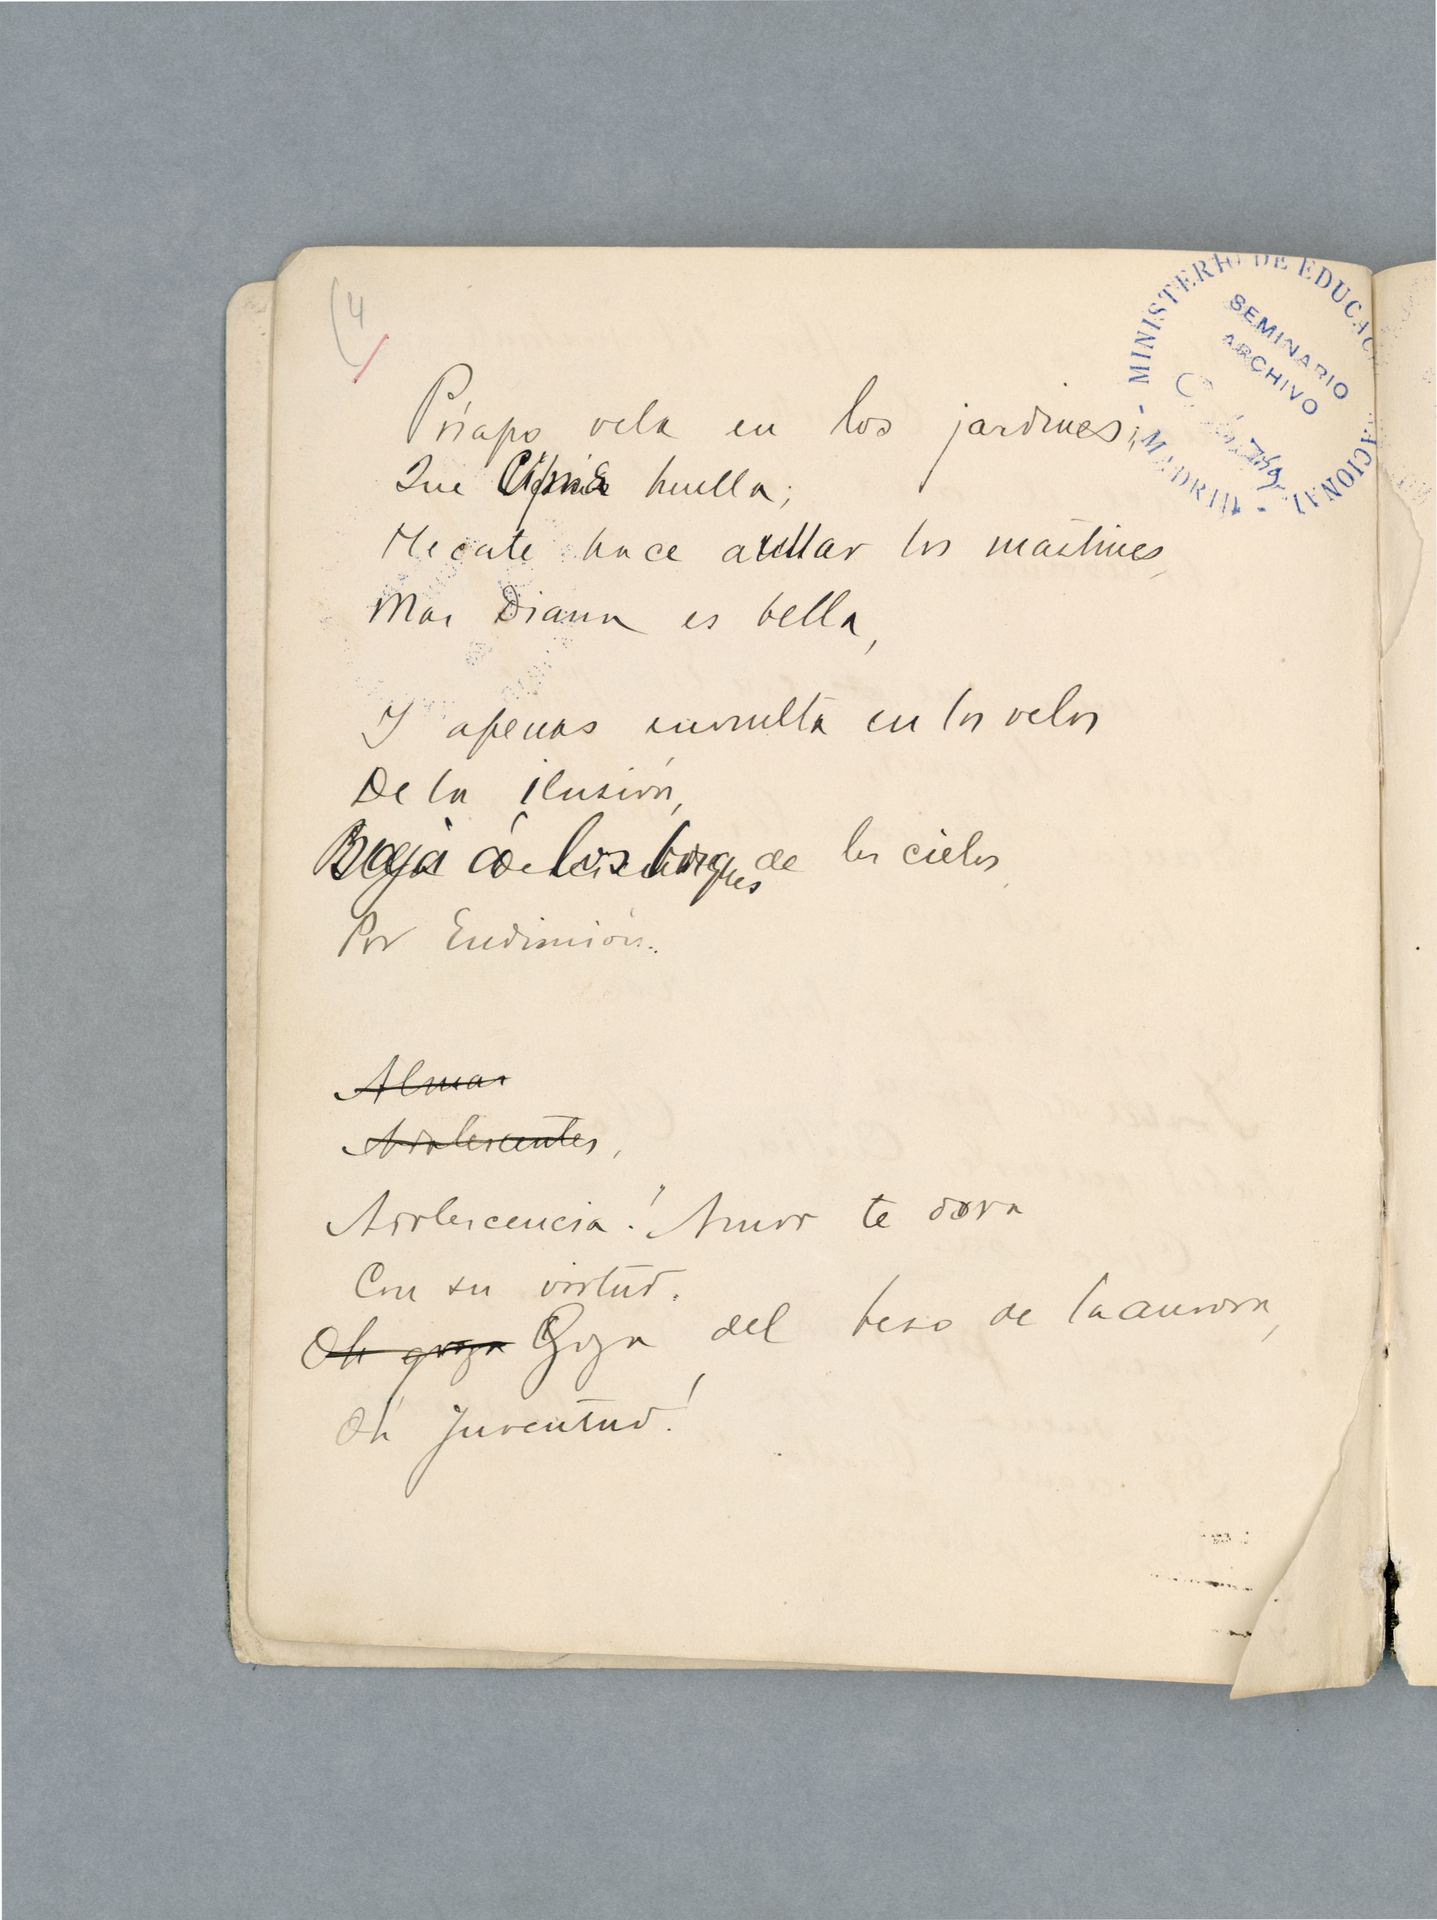 4
MINISTERIO DE EDUCACIÓN NACIONAL - MADRID -
SEMINARIO
ARCHIVO
Príapo vela en los jardines;
Que Cipria huella;
Hecate hace aullar los mastines,
Mas Diana es bella,
Y apenas envuelta en los velos
De la ilusión,
Baja á los bosques de los cielos
Por Endimión.
Almas
Adolescentes,
Adolescencia! Amor te dora
Con su virtud.
Oh goza Goza del beso de la aurora,
Oh juventud!